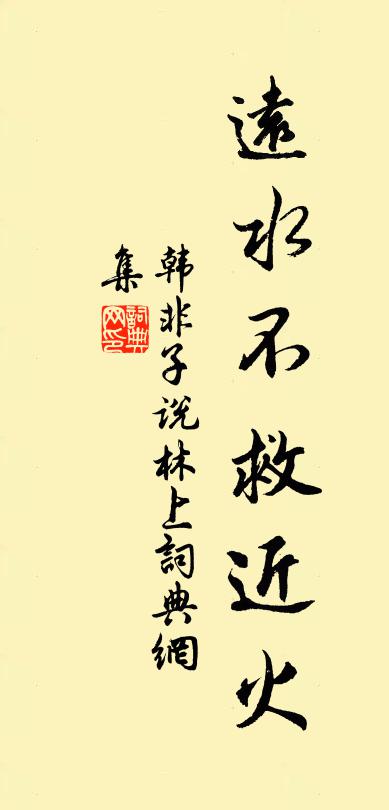 遠水不救近火
韩非子说林上詞典網
集
詞典网印